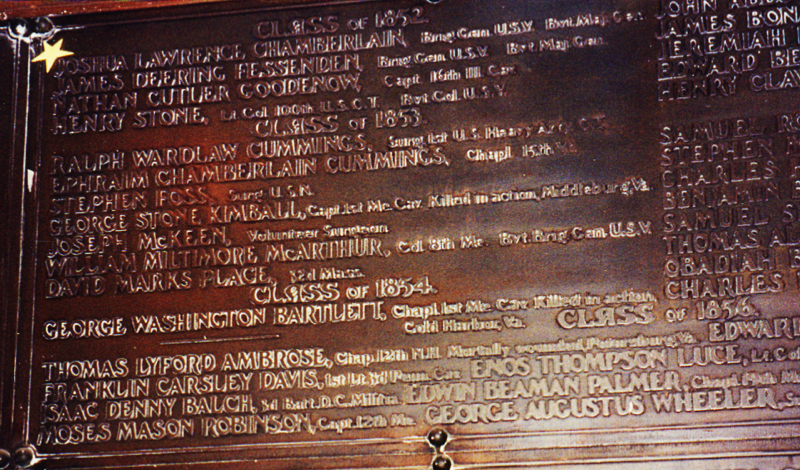 CLASS OF 1852.
JOSHUA LAWRENCE CHAMBERLAIN, Brig. Gen. U.S.V. Bvt. Maj. Gen
JAMES DEERING FESSENDEN, Brig. Gen. U.S.V. Bvt. Maj. Gen.
NATHAN CUTLER GOODENOW, Capt. 16th Ill. Cav.
HENRY STONE, Lt. Col. 100th U.S.C.T. Bvt. Col. U.S.V.
CLASS OF 1853.
RALPH WARDLAW CUMMINGS, Surg. 1st U.S. Heavy Art.
EPHRAIM CHAMBERLAIN CUMMINGS, Chapl. 15th
STEPHEN FOSS, Surg. U.S.N.
GEORGE STONE KIMBALL, Capt. 1st Me. Cav. Killed in action, Middleburg, Va.
JOSEPH McKEEN, Volunteer Surgeon
WILLIAM MILTIMORE McARTHUR, Col. 8th Me. Bvt. Brig. Gen. U.S.V.
DAVID MARKS PLACE, Mass.
CLASS OF 1854.
GEORGE WASHINGTON BARTLETT, Chapl. 1st Me. Cav. Killed in action,
Cold Harbor, Va.
THOMAS LYFORD AMBROSE, Chap. 12th N.H. Mortally wounded, Petersburg, Va.
FRANKLIN CARSLEY DAVIS, 1st Lt. 3d Penn. Cav.
ISAAC DENNY BALCH, 3d Batt. D.C. Militia
MOSES MASON ROBINSON, Capt. 12th Me.
JAMES BON
JEREMIAH
EDWARD BE
HENRY CLA
SAMUEL RO
STEPHEN
CHARLES
BENJAMIN
SAMUEL S
THOMAS AL
OBADIAH
CHARLES
CLASS OF 1856.
EDWARD
ENOS THOMPSON LUCE, Lt. C
EDWIN BEAMAN PALMER, Chapl. 19th
GEORGE AUGUSTUS WHEELER, S